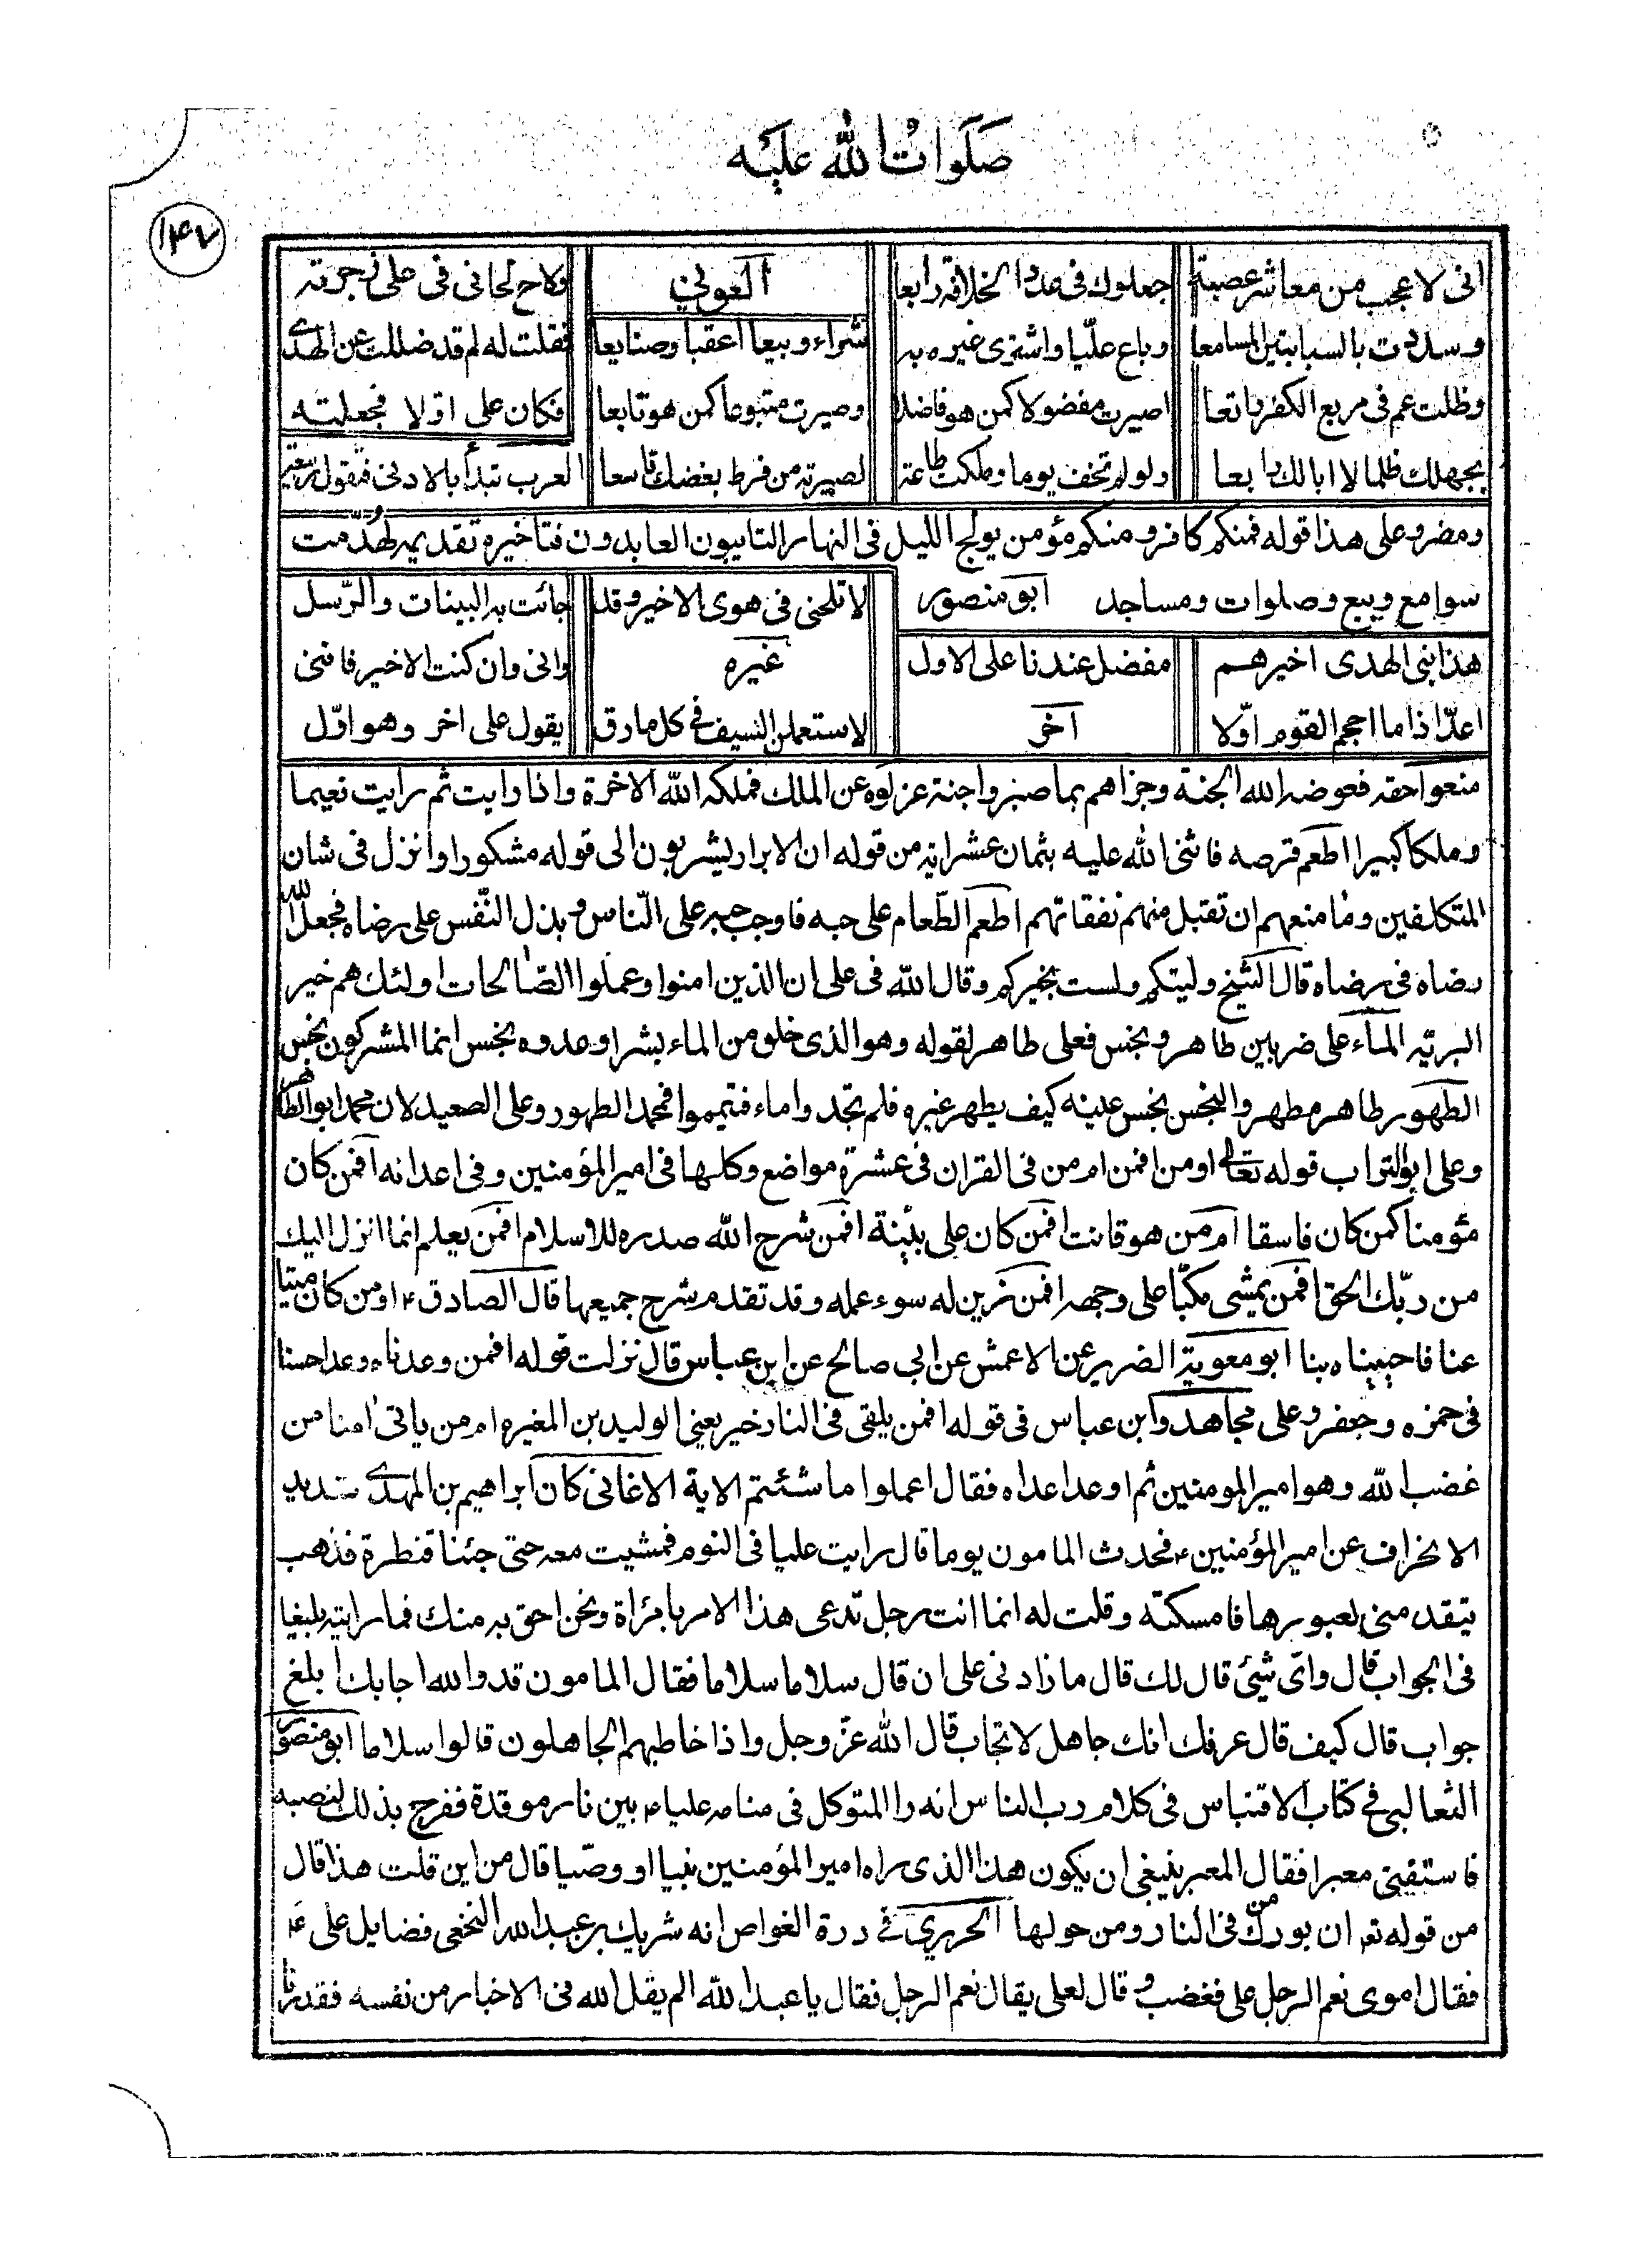 صَلَواتُ اللّٰه عليَه
١٤٧
انى لاعجب من معاشر عصبة جعلوك فى عدد الخلافة رابعا العونى ولاح لحانى فى على زجرته
وسددت بالسبابتين المسامعا وباع عليّا واشترى غيره به شراء وبيعا اعقبا وصنايعا فقلت له لم قد ضللت عن الهدى
وظلت عم فى مربع الكفر راتعا اصيرت مفضولا كمن هو فاضلا وصيرت متبوعا كمن هو تابعا فكان على اولا فجعلته
بجهلك ظلما لا ابالك رابعا ولو لم تخف يوما وملكت طاعة لصيرته من فرط بغضك تاسعا العرب تبدأ بالادنى فتقول ربيعة
ومضر وعلى هذا قوله فمنكم كافر ومنكم مؤمن يولج الليل فى النهار التايبون العابدون فتاخيره تقديمه لهُدّمت
سوامع وبيع وصلوات ومساجد ابو منصور لا تلحنى فى هوى الاخير وقد جائت به البينات والرّسل
هذا بنى الهدى اخيرهم مفضل عندنا على الاول غيره وانى وان كنت الاخير فاننى
اعدّ اذا ما احجم القوم اوّلا اخر لاستعملن السيف فى كل مارق يقول على اخر وهو اوّل
منعوا حقه فعوضه الله الجنة وجزاهم بما صبروا جنة عزلوه عن الملك فملكه الله الاخرة واذا رايت ثم رايت نعيما
وملكا كبيرا اطعم قرصه فاثنى الله عليه بثمان عشر اية من قوله ان الابرار يشربون الى قوله مشكورا وانزل فى شان
المتكلفين وما منعهم ان تقبل منهم نفقاتهم اطعم الطّعام على حبه فاوجب حبه على النّاس وبذل النّفس على رضاه فجعل الله
رضاه فى رضاه قال الشيخ وليتكم ولست بخيركم وقال الله فى على ان الذين امنوا وعملوا الصّالحات اولئك هم خير
البريّه الماء على ضربين طاهر ونجس فعلى طاهر لقوله وهو الذى خلق من الماء بشرا وعدوه نجس انما المشركون نجس
الطهور طاهر مطهر والنجس نجس عينه كيف يطهر غيره فلم تجدوا ماء فتيمموا فمحمد الطهور وعلى الصعيد لان محمد ابو الطاهر
وعلى ابو التراب قوله تعالى اومن افمن ام من فى القران فى عشرة مواضع وكلها فى امير المؤمنين وفى اعدائه افمن كان
مؤمنا كمن كان فاسقا ام من هو قانت افمن كان على بيّنة افمن شرح الله صدره للاسلام افمن يعلم انما انزل اليك
من ربّك الحق افمن يمشى مكبّا على وجهه افمن زين له سوء عمله وقد تقدم شرح جميعها قال الصادق ع اومن كان ميتا
عنا فاحييناه بنا ابو معوية الضرير عن الاعمش عن ابى صالح عن ابن عباس قال نزلت قوله افمن وعدناه وعدا حسنا
فى حمزه وجعفر وعلى مجاهد وابن عباس فى قوله افمن يلقى فى النار خير يعنى الوليد بن المغيره ام من ياتى امنا من
غضب الله وهو امير المومنين ثم اوعد اعداه فقال اعملوا ما شئتم الاية الاغانى كان ابراهيم بن المهدى شديد
الانحراف عن امير المؤمنين ع فحدث المامون يوما قال رايت عليا فى النوم فمشيت معه حتى جئنا قنطرة فذهب
يتقدمنى لعبورها فامسكته وقلت له انما انت رجل تدعى هذا الامر بامرأة ونحن احق به منك فما رايته بليغا
فى الجواب قال واىّ شيئ قال لك قال ما زادنى على ان قال سلاما سلاما فقال المامون قد والله اجابك ابلغ
جواب قال كيف قال عرفك انك جاهل لا تجاب قال الله عزّ وجل واذا خاطبهم الجاهلون قالوا سلاما ابو منصور
الثعالبى فى كتاب الاقتباس فى كلام رب الناس انه را المتوكل فى منامه عليا ع بين نار موقدة ففرح بذلك لنصبه
فاستفتى معبرا فقال المعبر ينبغى ان يكون هذا الذى راه امير المؤمنين نبيا او وصيّا قال من اين قلت هذا قال
من قوله تع ان بورك من فى النار ومن حولها الحريرى فى درة الغواص انه شريك بن عبد الله النخعى فضايل على ع
فقال اموى نعم الرجل على فغضب وقال لعلى يقال نعم الرجل فقال يا عبد اللّه الم يقل الله فى الاخبار من نفسه فقدرنا